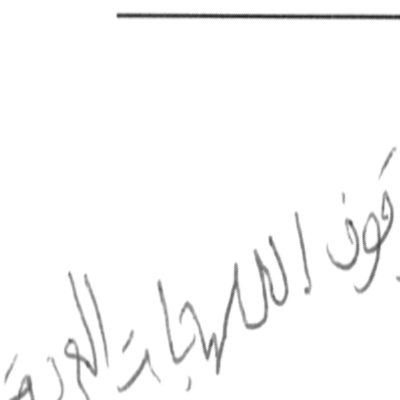 فوق اللهجات العربية